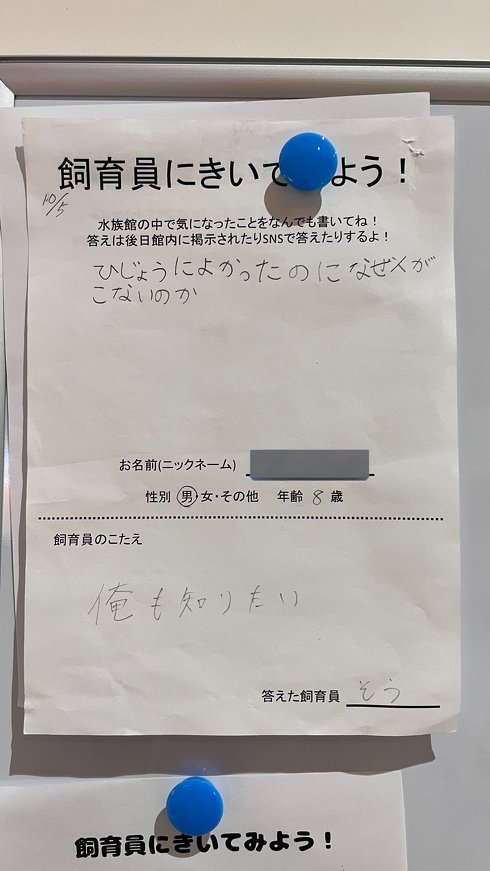 飼育員にきいて よう！
10/5
水族館の中で気になったことをなんでも書いてね！
答えは後日館内に掲示されたりSNSで答えたりするよ！
ひじょうによかったのになぜ人が
こないのか
お名前(ニックネーム)
性別 男・女・その他 年齢 8 歳
飼育員のこたえ
俺も知りたい
答えた飼育員 そう
飼育員にきいてみよう！